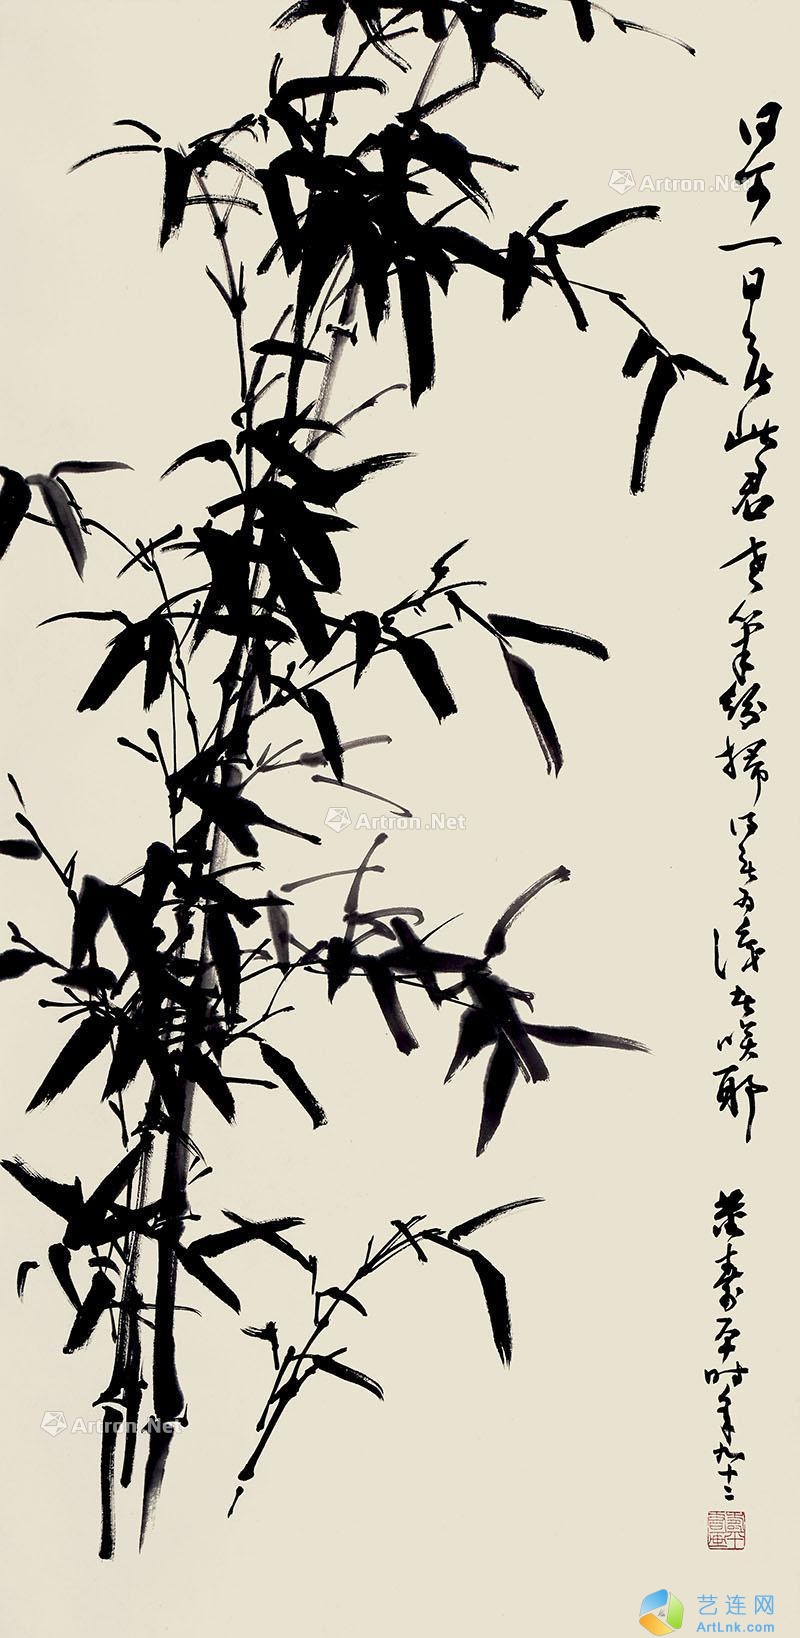 何可一日无此君老筆紛掃得无为識者咲耶
董寿平时年九十二
Artron.Net
Artron.Net
Artron.Net
艺连网
ArtLnk.com